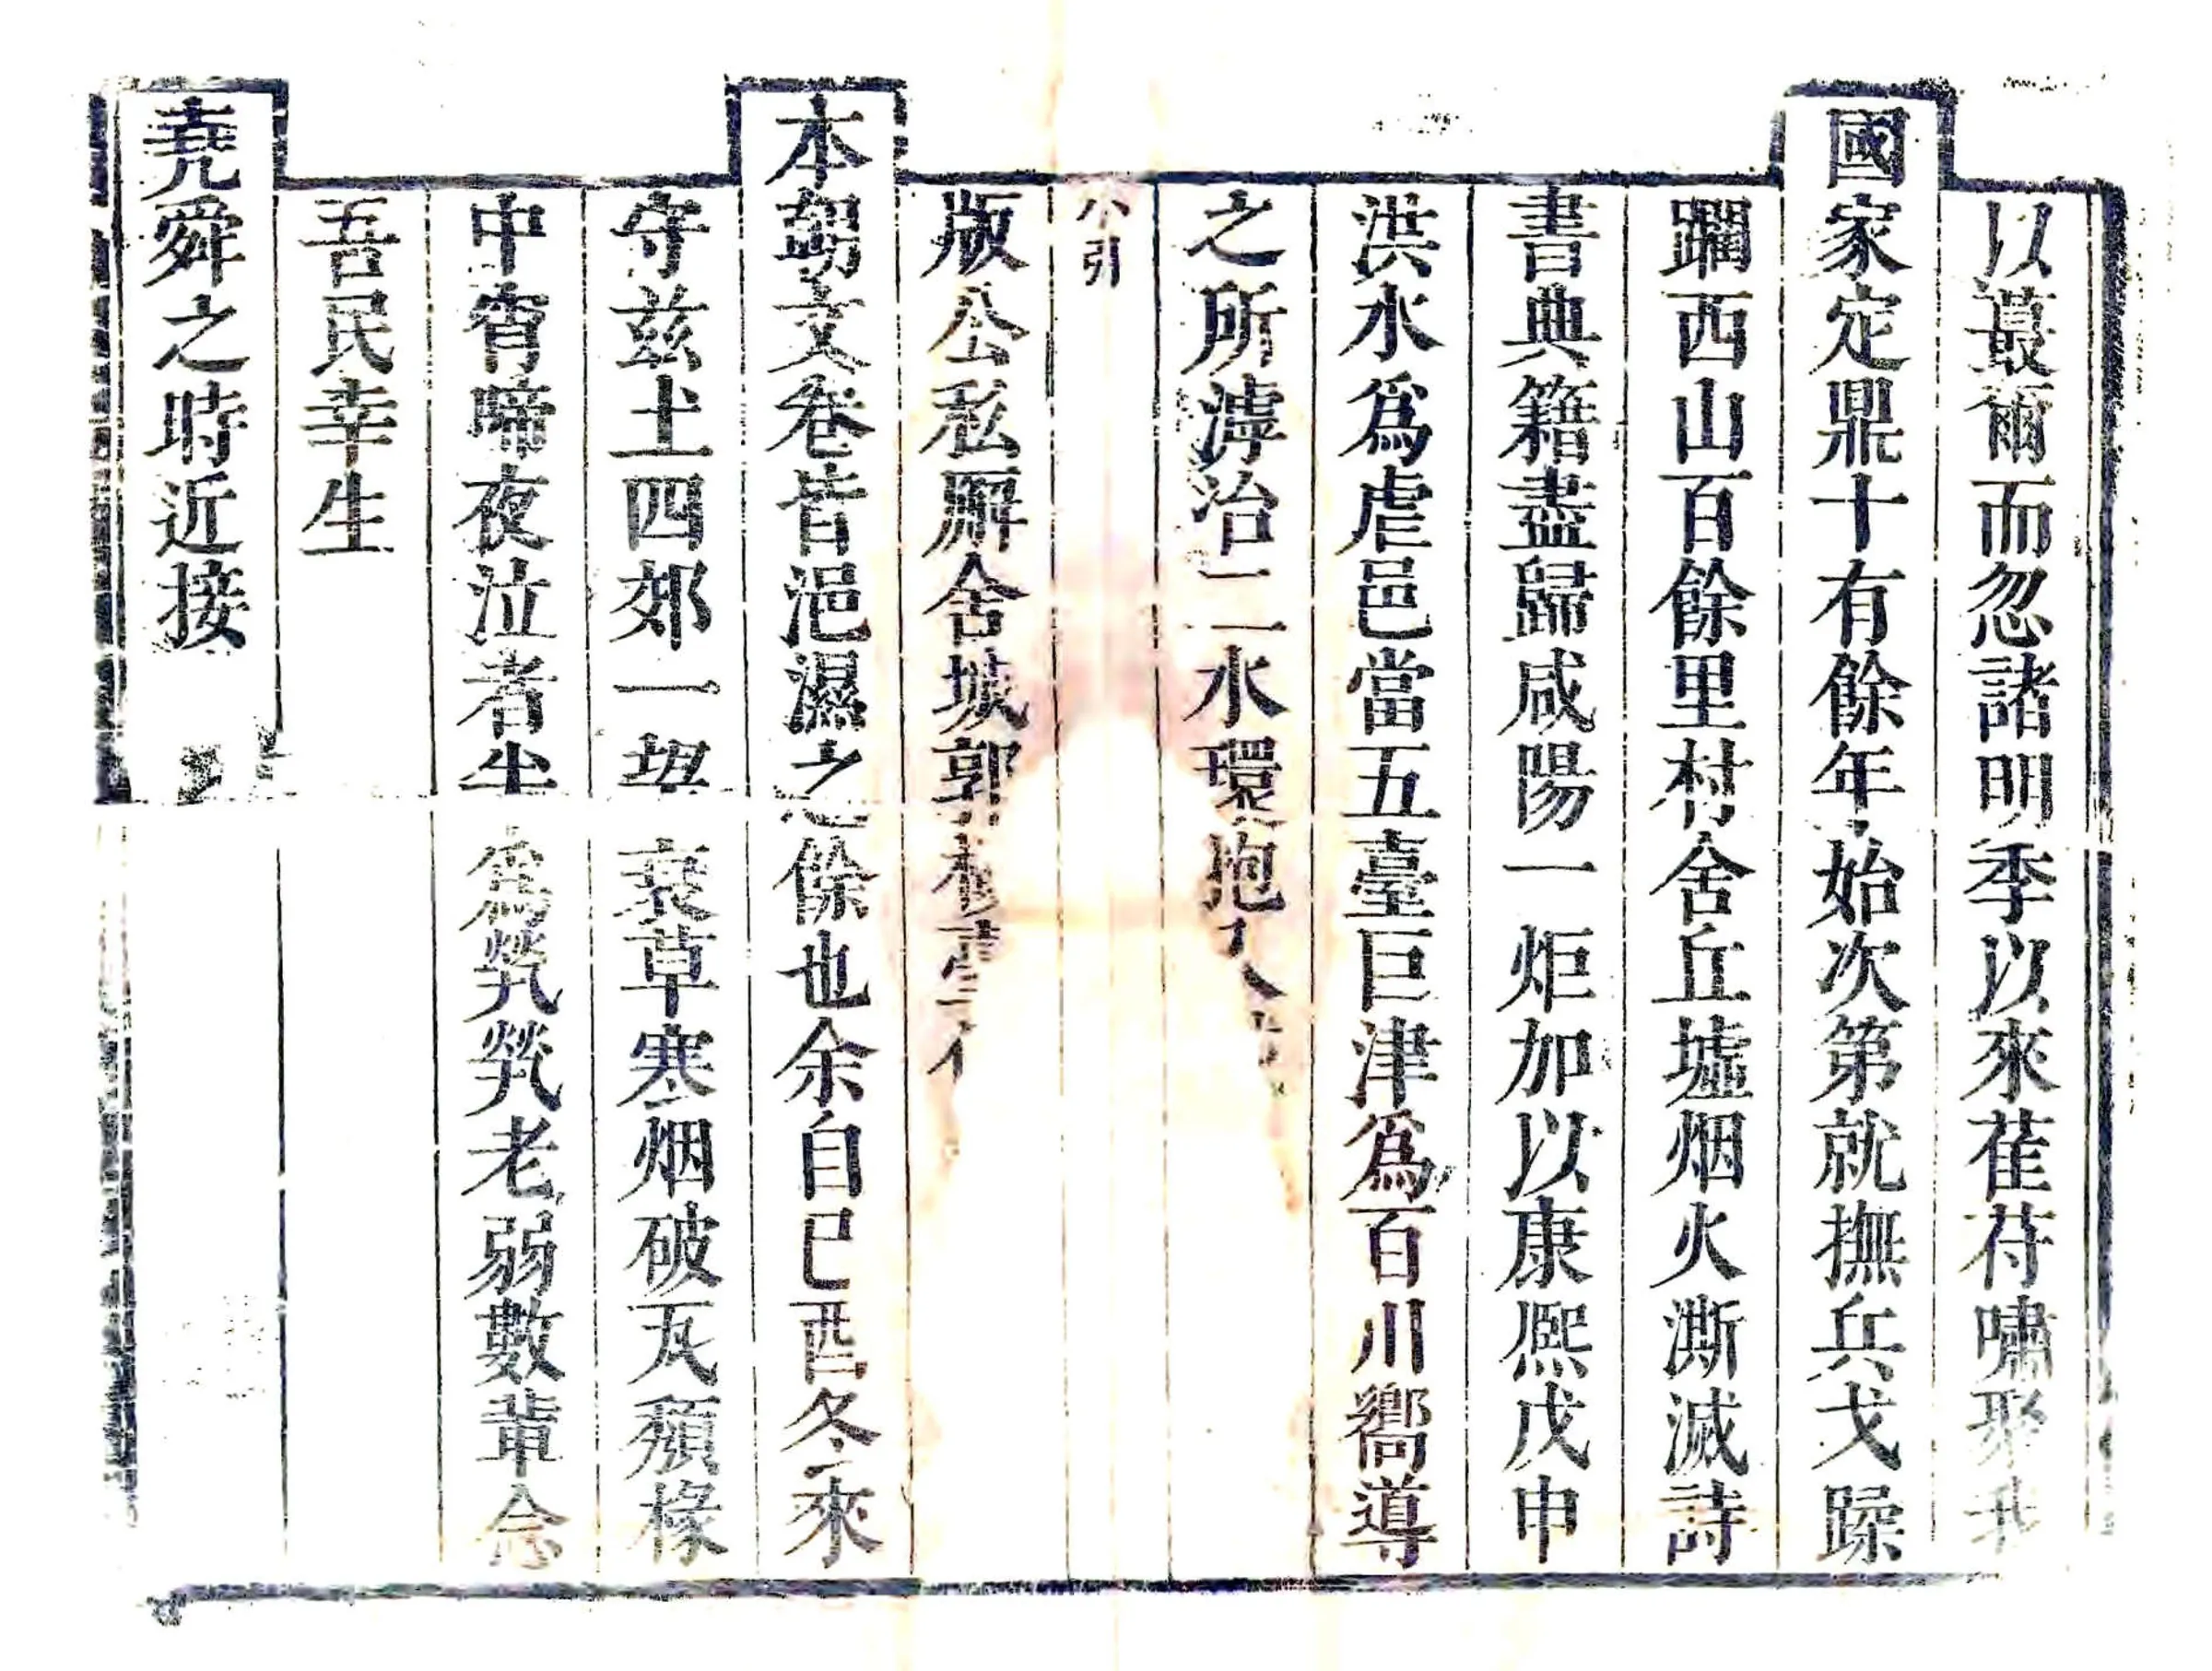 以蕞爾而忽諸明季以來萑苻嘯聚
國家定鼎十有餘年始次第就撫兵戈蹂
躪西山百餘里村舍丘墟烟火澌滅詩
書典籍盡歸咸陽一炬加以康熙戊申
洪水爲虐邑當五臺巨津爲百川嚮導
之所滹冶二水環抱
小引
版公私廨舍城郭
本朝文卷皆浥濕之餘也余自己酉冬來
守茲土四郊一望衰草寒烟破瓦頹椽
中宵啼夜泣者半爲煢煢老弱數輩念
吾民幸生
堯舜之時近接